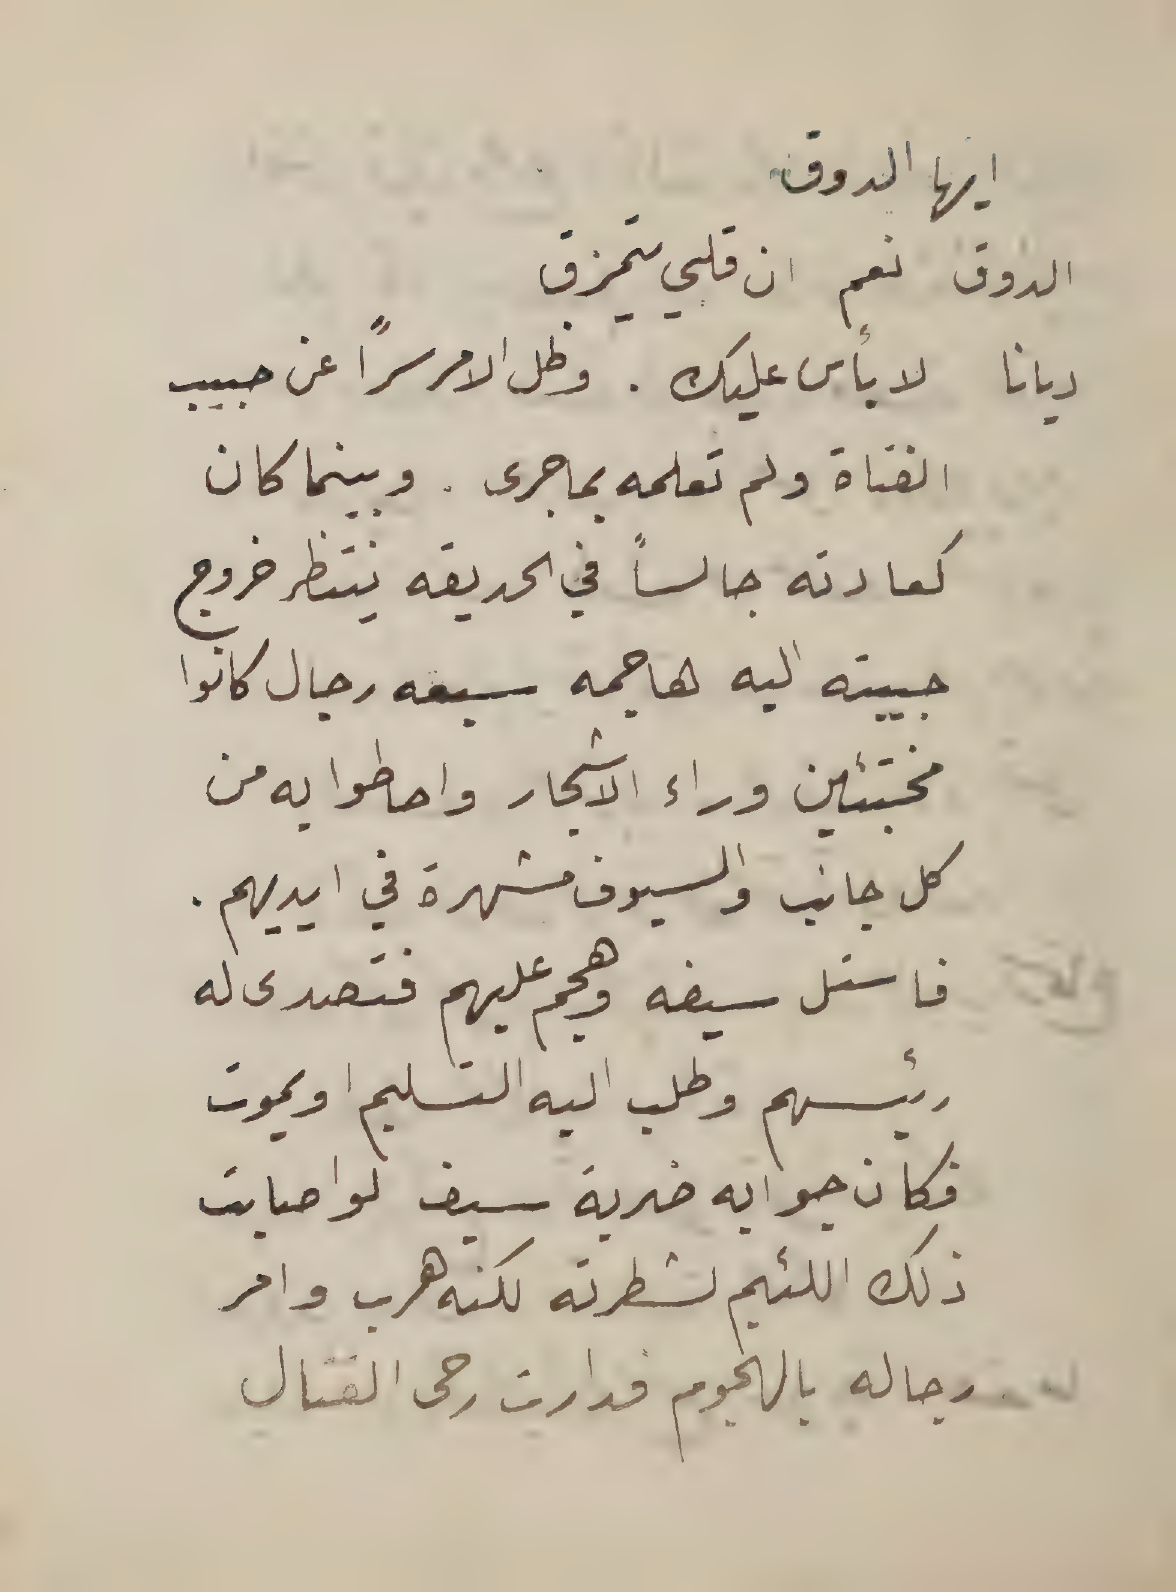 ايها الدوق
الدوق نعم ان قلبي يتمزق
ديانا لا بأس عليك . وظل الامر سرًا عن حبيب
الفتاة ولم تعلمه بما جرى . وبينما كان
كعادته جالساً في الحديقه ينتظر خروج
حبيبته اليه هاجمه سبعه رجال كانوا
مختبئين وراء الاشجار واحاطوا به من
كل جانب والسيوف مشهرة في ايديهم .
فاستل سيفه وهجم عليهم فتصدى له
رئيسهم وطلب اليه التسليم او يموت
فكان جوابه ضربة سيف لو اصابت
ذلك اللئيم لشطرته لكنه هرب وامر
رجاله بالهجوم فدارت رحى القتال